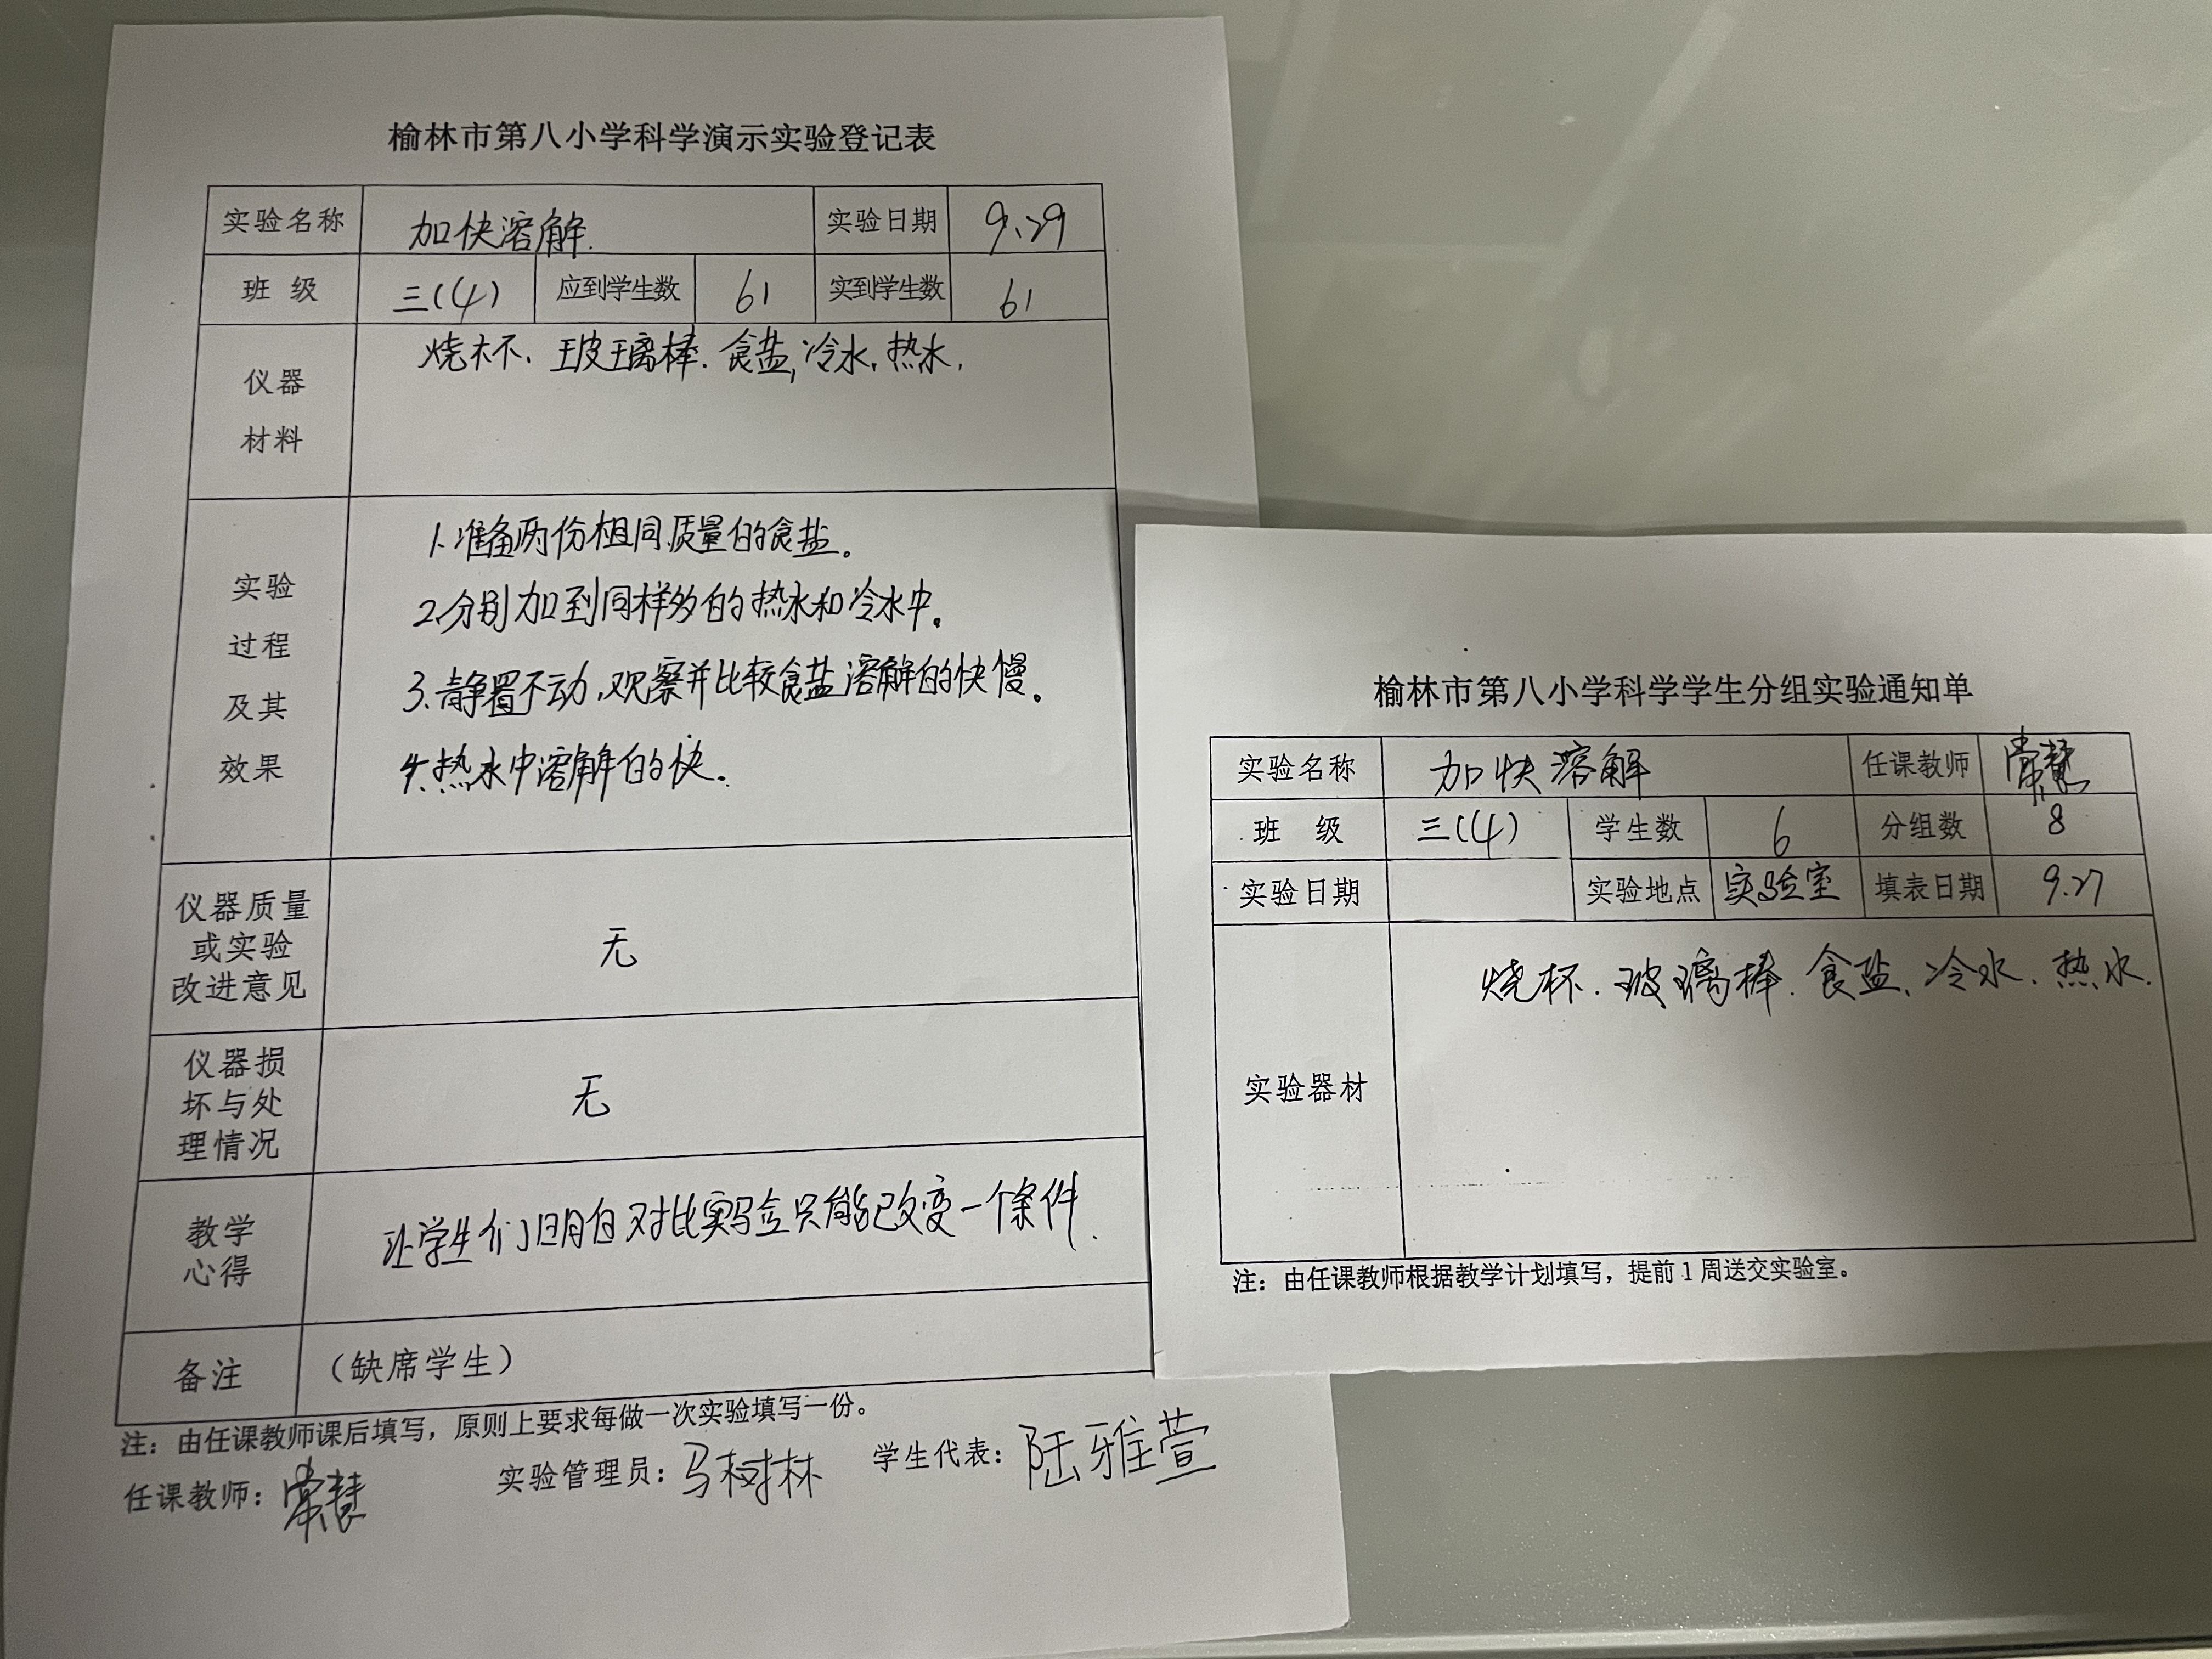 榆林市第八小学科学演示实验登记表
实验名称 加快溶解. 实验日期 9.29
班 级 三(4) 应到学生数 61 实到学生数 61
仪器
材料
烧杯、玻璃棒.食盐,冷水.热水.
实验
过程
及其
效果
1.准备两份相同质量的食盐。
2.分别加到同样多的热水和冷水中。
3.静置不动,观察并比较食盐溶解的快慢。
4.热水中溶解的快.
仪器质量
或实验
改进意见
无
仪器损
坏与处
理情况
无
教学
心得
让学生们明白对比实验只能改变一个条件.
备注 (缺席学生)
注:由任课教师课后填写,原则上要求每做一次实验填写一份。
任课教师:常慧 实验管理员:马树林 学生代表:陆雅萱
榆林市第八小学科学学生分组实验通知单
实验名称 加快溶解 任课教师 常慧
班 级 三(4) 学生数 6 分组数 8
实验日期 实验地点 实验室 填表日期 9.27
实验器材
烧杯.玻璃棒.食盐、冷水.热水.
注:由任课教师根据教学计划填写,提前1周送交实验室。